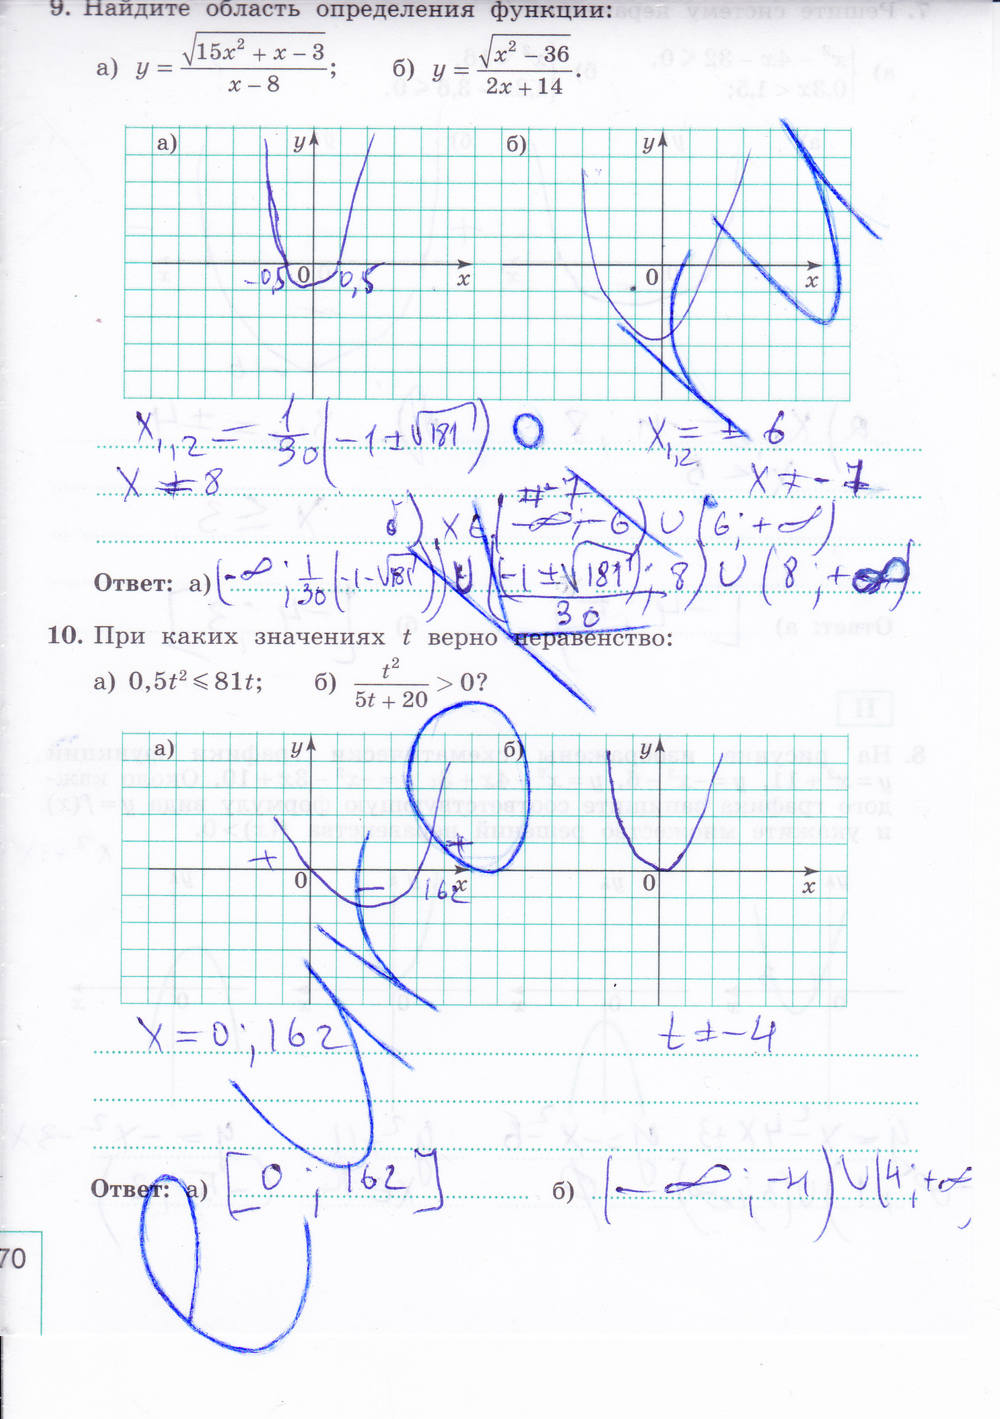 9. Найдите область определения функции:
а) y = √(15x² + x − 3) / (x − 8); б) y = √(x² − 36) / (2x + 14).
а) y б) y
−0,5 0 0,5 x 0 x
x₁,₂ = 1/30 (−1 ± √181) x₁,₂ = ± 6
x ≠ 8 x ≠ −7
≠ −7
б) x ∈ (−∞; −6) ∪ (6; +∞)
Ответ: а) (−∞; 1/30 (−1−√181)) ∪ ((−1 ± √181)/30; 8) ∪ (8; +∞)
10. При каких значениях t верно неравенство:
а) 0,5t² ⩽ 81t; б) t² / (5t + 20) > 0?
а) y б) y
+ 0 − 162 + x 0 x
x = 0; 162 t ≠ −4
Ответ: а) [0; 162] б) (−∞; −4) ∪ (4; +∞
70